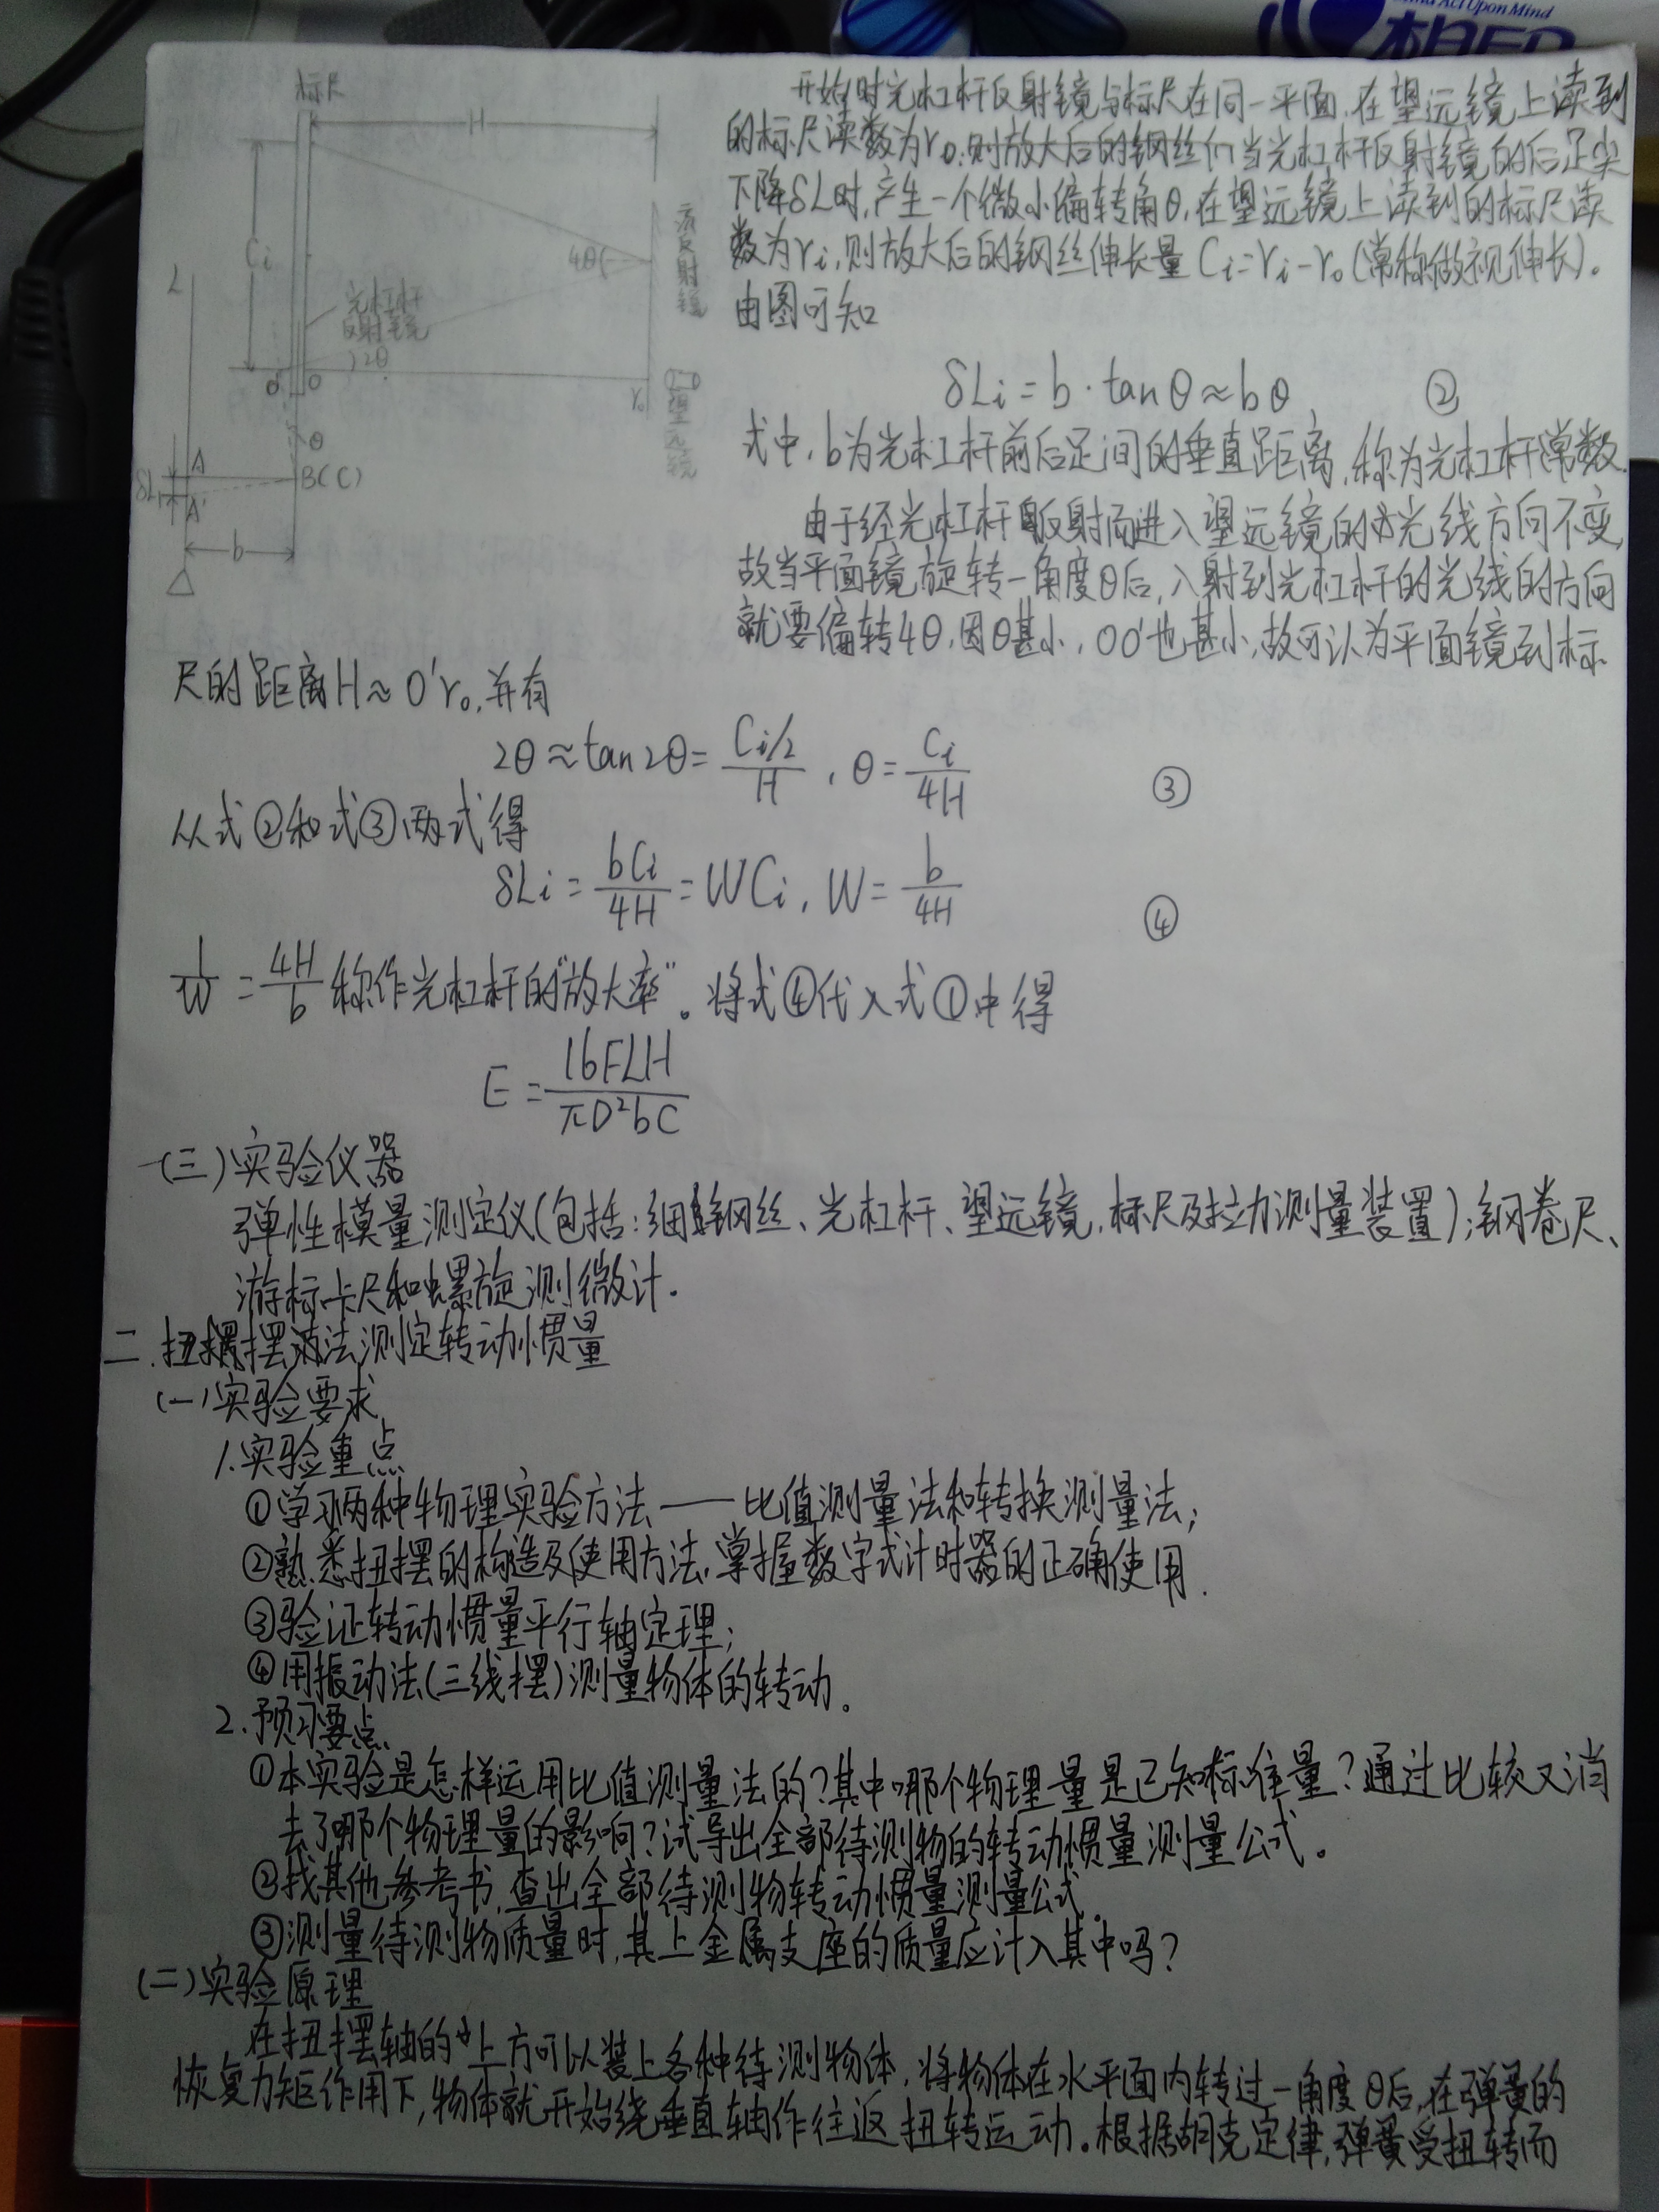 Mind Act Upon Mind
标尺
H
Ci
L
4θ
光杠杆
反射镜
2θ
O' O
r₀
θ
A
B(C)
δL
A'
b
望远镜
开始时光杠杆反射镜与标尺在同一平面,在望远镜上读到
的标尺读数为r₀,则放大后的钢丝们当光杠杆反射镜的后足尖
下降δL时,产生一个微小偏转角θ,在望远镜上读到的标尺读
数为ri,则放大后的钢丝伸长量Ci=ri-r₀(常称做视伸长)。
由图可知
δLi=b·tanθ≈bθ ②
式中,b为光杠杆前后足间的垂直距离,称为光杠杆常数.
由于经光杠杆反射而进入望远镜的光线方向不变,
故当平面镜旋转一角度θ后,入射到光杠杆的光线的方向
就要偏转4θ,因θ甚小,OO'也甚小,故可认为平面镜到标
尺的距离H≈O'r₀,并有
2θ≈tan2θ=(Ci/2)/H, θ=Ci/4H ③
从式②和式③两式得
δLi=bCi/4H=WCi, W=b/4H ④
1/W=4H/b称作光杠杆的"放大率"。将式④代入式①中得
E=16FLH/πD²bC
(三)实验仪器
弹性模量测定仪(包括:细钢丝、光杠杆、望远镜,标尺及拉力测量装置);钢卷尺、
游标卡尺和螺旋测微计.
二.扭摆法测定转动惯量
(一)实验要求
1.实验重点
①学习两种物理实验方法——比值测量法和转换测量法;
②熟悉扭摆的构造及使用方法,掌握数字式计时器的正确使用.
③验证转动惯量平行轴定理;
④用振动法(三线摆)测量物体的转动。
2.预习要点
①本实验是怎样运用比值测量法的?其中哪个物理量是已知标准量?通过比较又消
去了哪个物理量的影响?试导出全部待测物的转动惯量测量公式。
②找其他参考书,查出全部待测物转动惯量测量公式.
③测量待测物质量时,其上金属支座的质量应计入其中吗?
(二)实验原理
在扭摆轴的上方可以装上各种待测物体,将物体在水平面内转过一角度θ后,在弹簧的
恢复力矩作用下,物体就开始绕垂直轴作往返扭转运动。根据胡克定律,弹簧受扭转而